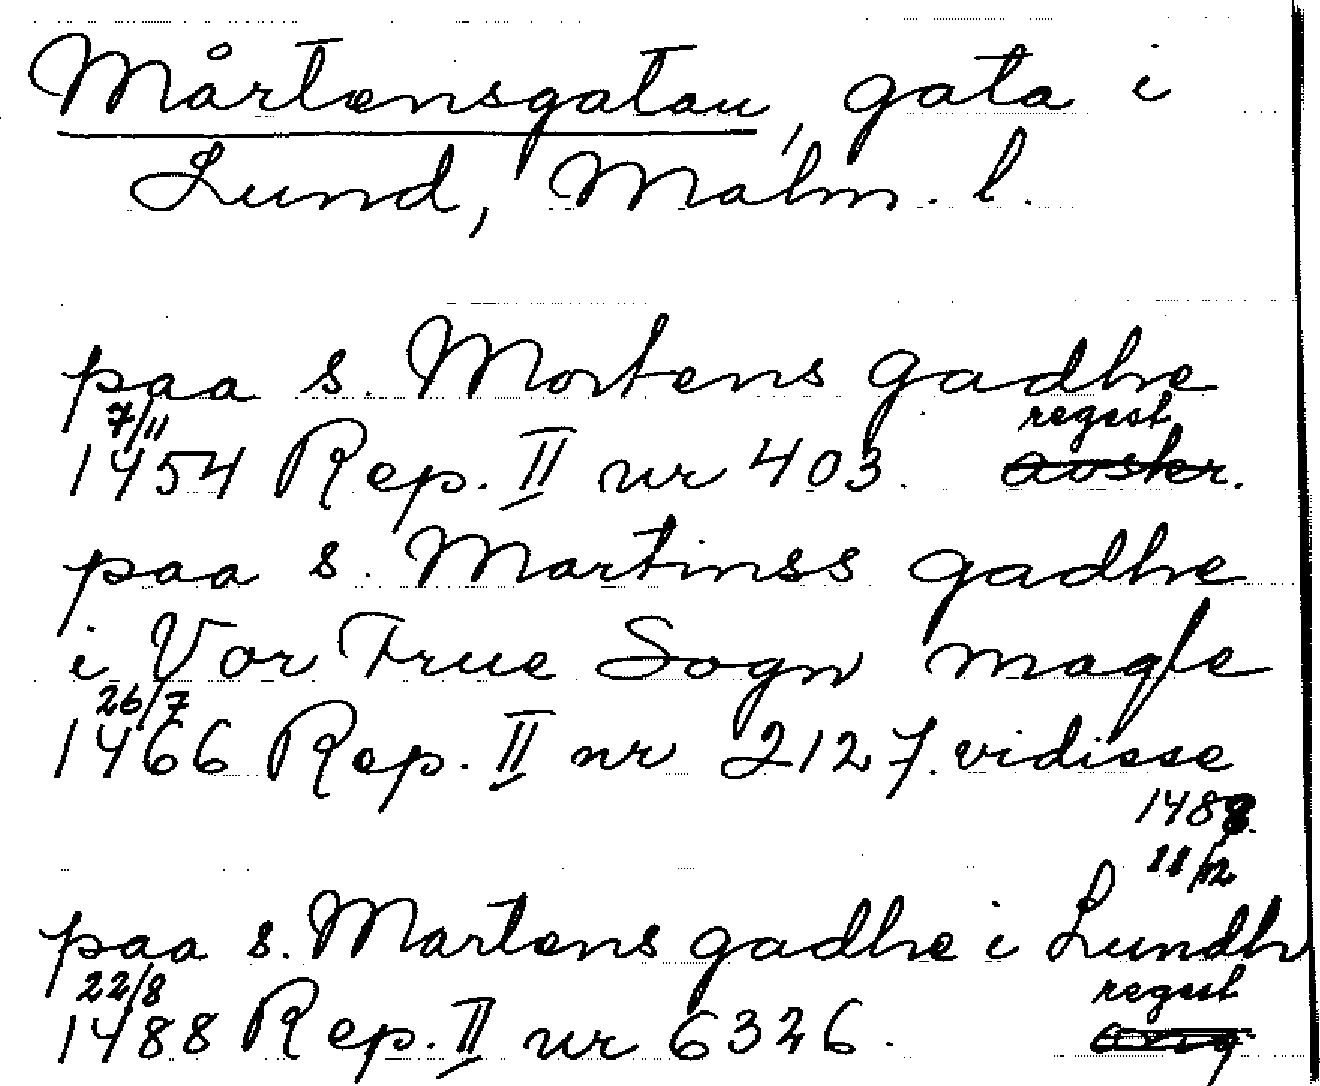 Mårtensgatan, gata i
Lund, Malm. l.
paa s. Mortens gadhe
7/11 regest
1454 Rep. II nr 403. avskr.
paa s. Martinss gadhe
i Vor Frue Sogn magle
26/7
1466 Rep. II nr 2127. vidisse
1488.
11/12
paa s. Martens gadhe i Lundh
22/8 regest
1488 Rep. II nr 6326.